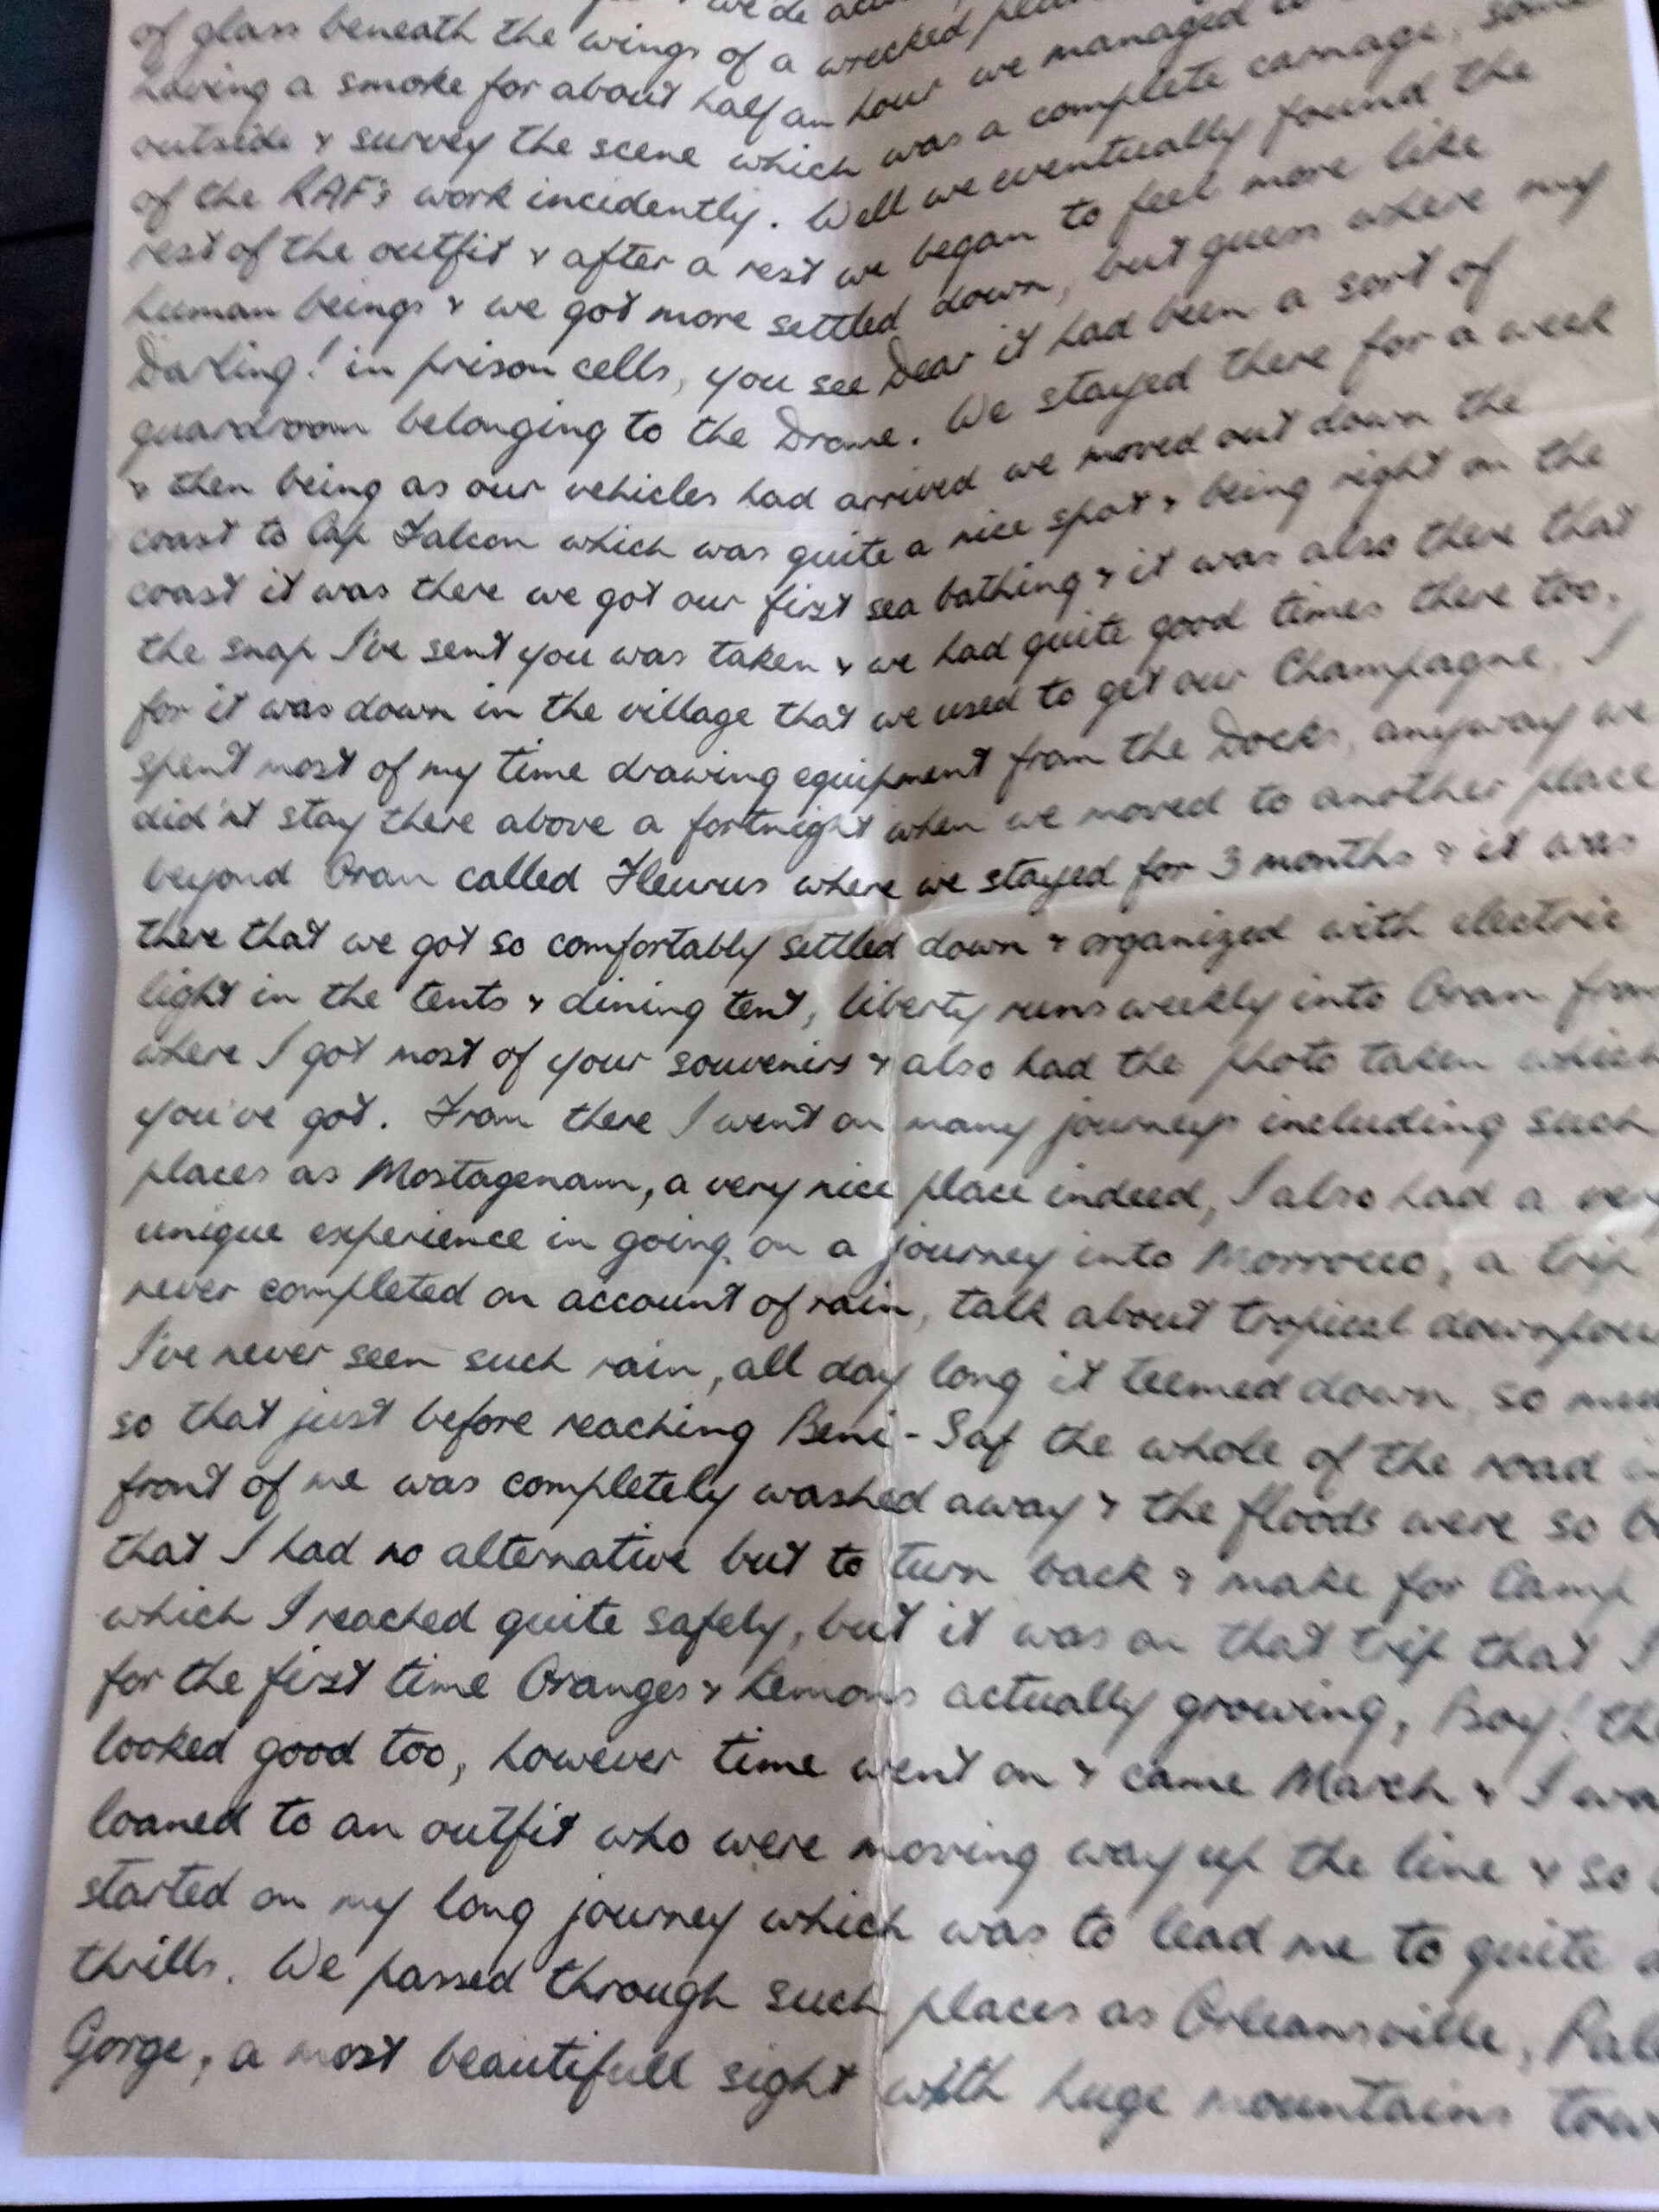 of glass beneath the wings of a wrecked
having a smoke for about half an hour we managed
outside & survey the scene which was a complete carnage, some
of the RAF's work incidently. Well we eventually found the
rest of the outfit & after a rest we began to feel more like
human beings & we got more settled down, but guess where my
Darling! in prison cells, you see Dear it had been a sort of
guardroom belonging to the Drome. We stayed there for a week
& then being as our vehicles had arrived we moved out down the
coast to Cap Falcon which was quite a nice spot & being right on the
coast it was there we got our first sea bathing & it was also there that
the snap I've sent you was taken & we had quite good times there too,
for it was down in the village that we used to get our Champagne, I
spent most of my time drawing equipment from the Docks, anyway we
did'nt stay there above a fortnight when we moved to another place
beyond Oran called Fleurus where we stayed for 3 months & it was
there that we got so comfortably settled down & organized with electric
light in the tents & dining tent, liberty runs weekly into Oran from
where I got most of your souvenirs & also had the photo taken which
you've got. From there I went on many journeys including such
places as Mostagenam, a very nice place indeed, I also had a very
unique experience in going on a journey into Morrocco, a trip
never completed on account of rain, talk about tropical downpour
I've never seen such rain, all day long it teemed down, so
so that just before reaching Beni-Saf the whole of the road in
front of me was completely washed away & the floods were so
that I had no alternative but to turn back & make for Camp
which I reached quite safely, but it was on that trip that I
for the first time Oranges & Lemons actually growing, Boy!
looked good too, however time went on & came March & I
loaned to an outfit who were moving way up the line & so
started on my long journey which was to lead me to quite a
thrills. We passed through such places as Orleansville,
Gorge, a most beautifull sight with huge mountains